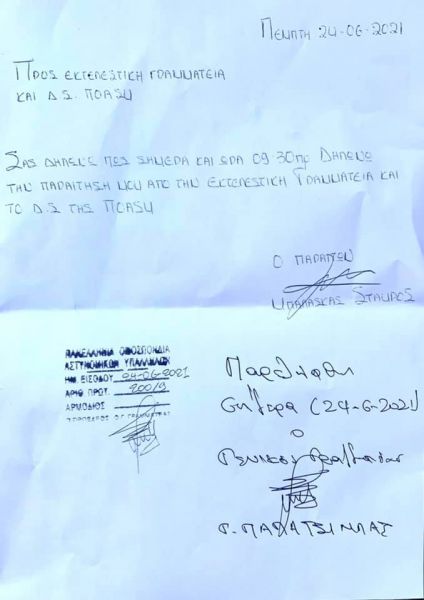 ΠΕΜΠΤΗ 24-06-2021
ΠΡΟΣ ΕΚΤΕΛΕΣΤΙΚΗ ΓΡΑΜΜΑΤΕΙΑ
ΚΑΙ Δ.Σ. ΠΟΑΣΥ
ΣΑΣ ΔΗΛΩΝΩ ΠΩΣ ΣΗΜΕΡΑ ΚΑΙ ΩΡΑ 09 30πμ ΔΗΛΩΝΩ
ΤΗΝ ΠΑΡΑΙΤΗΣΗ ΜΟΥ ΑΠΟ ΤΗΝ ΕΚΤΕΛΕΣΤΙΚΗ ΓΡΑΜΜΑΤΕΙΑ ΚΑΙ
ΤΟ Δ.Σ ΤΗΣ ΠΟΑΣΥ
Ο ΠΑΡΑΙΤΩΝ
ΜΠΑΛΑΣΚΑΣ ΣΤΑΥΡΟΣ
ΠΑΝΕΛΛΗΝΙΑ ΟΜΟΣΠΟΝΔΙΑ
ΑΣΤΥΝΟΜΙΚΩΝ ΥΠΑΛΛΗΛΩΝ
ΗΜ ΕΙΣΟΔΟΥ 24-06-2021
ΑΡΙΘ ΠΡΩΤ. 200/9
ΑΡΜΟΔΙΟΣ
Παρελήφθη
Σήμερα (24-6-2021)
Ο
Γενικός Γραμματέας
Γ. ΠΑΠΑΤΣΙΜΠΑΣ